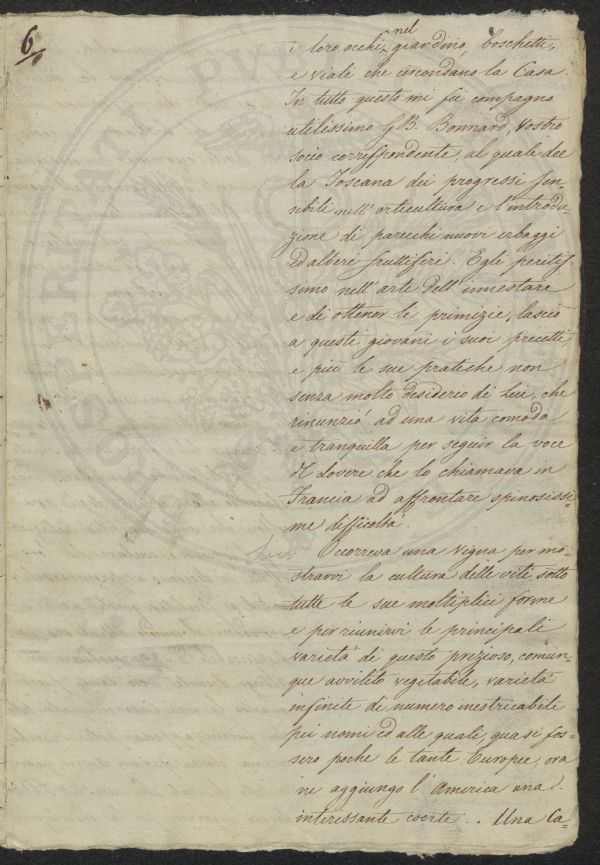 6
i loro occhi, nel giardino, boschetti,
e viali che circondano la Casa
In tutto questo mi fu compagno
utilissimo G. B. Bonnard, vostro
socio corrispondente, al quale dee
la Toscana dei progressi sen-
sibili nell' orticultura e l'introdu-
zione di parecchi nuovi erbaggi
ed alberi fruttiferi. Egli peritis
simo nell' arte dell' innestare
e di ottener le primizie, lasciò
a questi giovani i suoi precetti
e più le sue pratiche non
senza molto desiderio di Lui, che
rinunziò ad una vita comoda
e tranquilla per seguir la voce
del dovere che lo chiamava in
Francia ad affrontare spinosissi=
me difficoltà.
Occorreva una vigna per mo-
strarvi la cultura delle viti sotto
tutte le sue moltiplici forme
e per riunirvi le principali
varietà di questo prezioso, comun-
que avvilito vegetabile, varietà
infinite di numero inestricabile
pei nomi ed alle quali, quasi fos-
sero poche le tante Europee, ora
ne aggiungo l'America una
interessante coorte.. Una Ca=